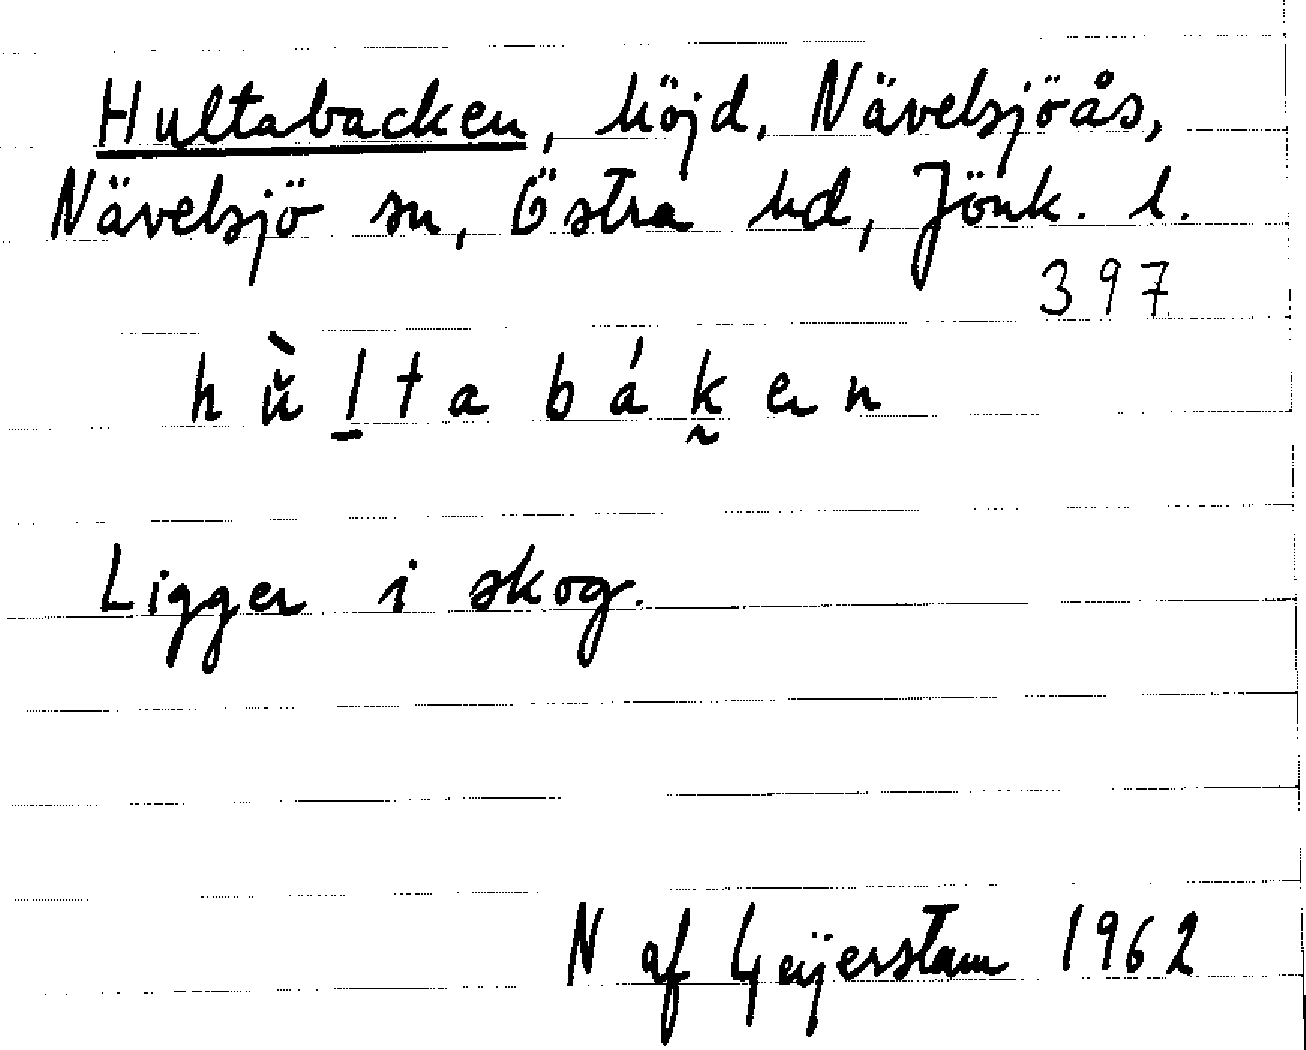 Hultabacken, höjd, Nävelsjöås,
Nävelsjö sn, Östra hd, Jönk. l.
397
h ǜ̆ l̲ t a b á k̰ e n
Ligger i skog.
N af Geijerstam 1962